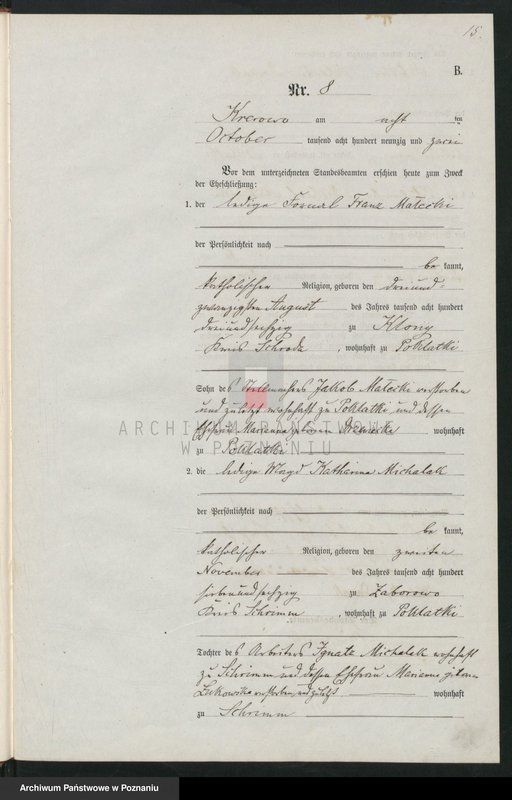 15.
B.
Nr. 8
Krerowo am acht ten
October tausend acht hundert neunzig und zwei
Vor dem unterzeichneten Standesbeamten erschien heute zum Zweck
der Eheschließung:
1. der ledige Fornal Franz Małecki
der Persönlichkeit nach
be kannt,
katholischer Religion, geboren den dreiund-
zwanzigsten August des Jahres tausend acht hundert
dreiundsechzig zu Klony
Kreis Schroda, wohnhaft zu Poklatki
Sohn des Stellmachers Jakob Małecki verstorben
und zuletzt wohnhaft zu Poklatki und dessen
Ehefrau Marianna geborenen wohnhaft
zu Poklatki
2. die ledige Magd Katharina Michalak
der Persönlichkeit nach
be kannt,
katholischer Religion, geboren den zweiten
November des Jahres tausend acht hundert
siebenundsechzig zu Zaborowo
Kreis Schrimm, wohnhaft zu Poklatki
Tochter des Arbeiters Ignatz Michalak wohnhaft
zu Schrimm und dessen Ehefrau Marianna geborenen
verstorben und zuletzt wohnhaft
zu Schrimm
ARCHIWUM PAŃSTWOWE
W POZNANIU
Archiwum Państwowe w Poznaniu